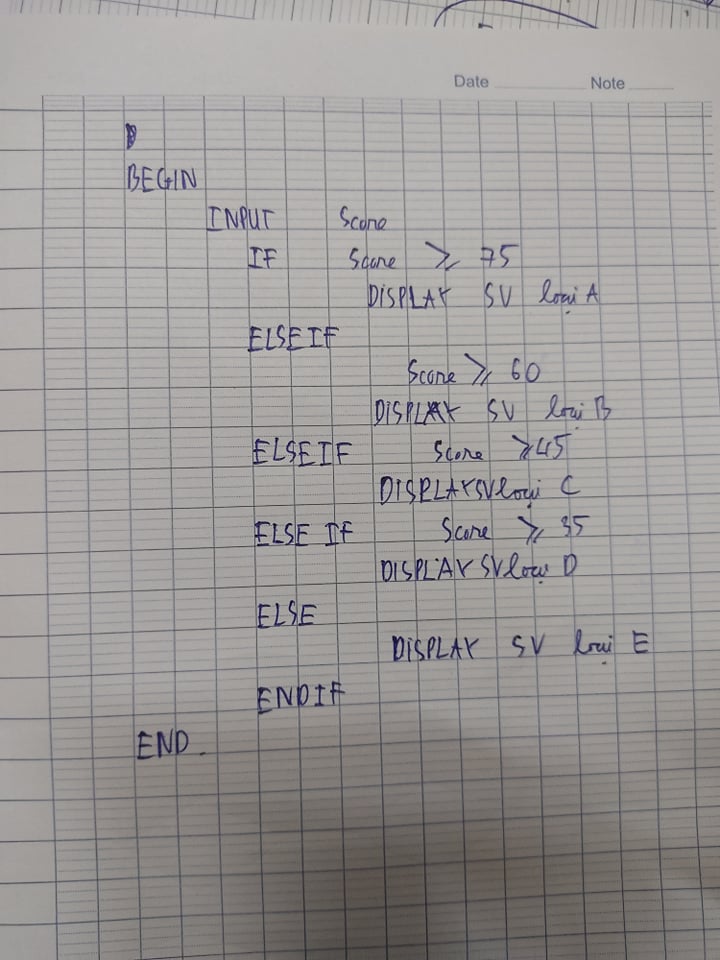 Date Note
BEGIN
INPUT Score
IF Score ⩾ 75
DISPLAY SV loại A
ELSEIF
Score ⩾ 60
DISPLAY SV loại B
ELSEIF Score ⩾45
DISPLAYSVloại C
ELSE IF Score ⩾ 35
DISPLAY SVloại D
ELSE
DISPLAY SV loại E
ENDIF
END.